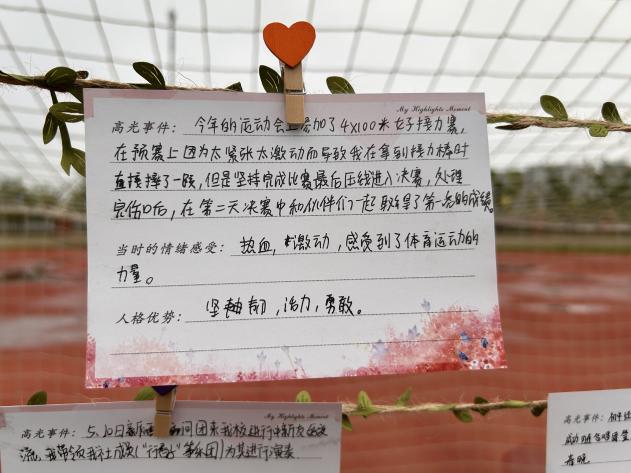 My Highlights Moment
高光事件： 今年的运动会上参加了4X100米女子接力赛，
在预赛上因为太紧张太激动而导致我在拿到接力棒时
直接摔了一跤，但是坚持完成比赛最后压线进入决赛，处理
完伤口后，在第二天决赛中和伙伴们一起取得了第一名的成绩。
当时的情绪感受： 热血，激动，感受到了体育运动的
力量。
人格优势： 坚韧，活力，勇敢。
My Highlights Moment
高光事件： 5.10日 团来我校进行
流，我带领我社成员 为其进行演奏
高光事件：